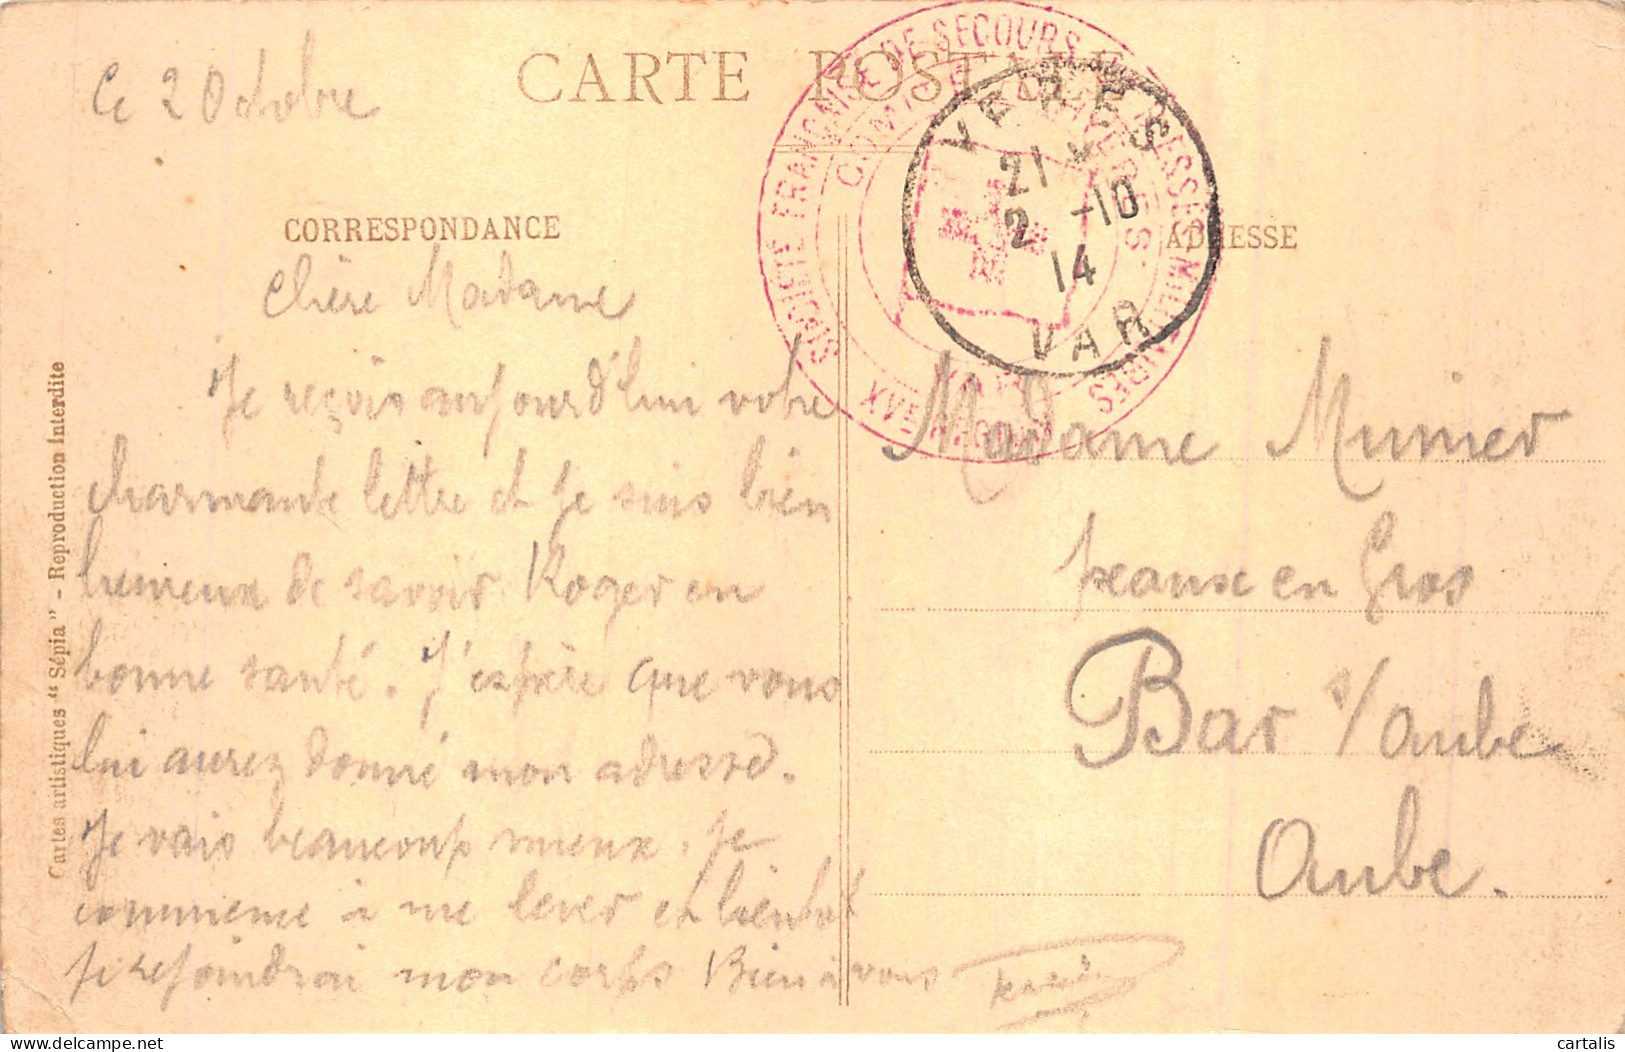 Ce 2 Octobre
CARTE POSTALE
CORRESPONDANCE
ADRESSE
SOCIÉTÉ FRANÇAISE DE SECOURS AUX BLESSÉS MILITAIRES
COMITÉ
HYERES
VAR
HYÈRES
21
2 -10
14
VAR
Cartes artistiques "Sépia" - Reproduction Interdite
Chère Madame
Je reçois aujourd'hui votre
charmante lettre et je suis bien
heureux de savoir Roger en
bonne santé. J'espère que vous
lui aurez donné mon adresse.
Je vais beaucoup mieux. Je
commence à me lever et bientot
je rejoindrai mon corps Bien à vous
Madame Munier
peaux en Gros
Bar s/Aube
Aube.
cartalis
delcampe.net